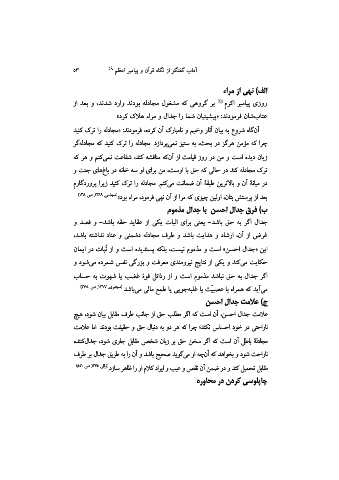 آداب گفتگو از نگاه قرآن و پیامبر اعظم ۵۳
الف) نهی از مراء
روزی پیامبر اکرم بر گروهی که مشغول مجادله بودند وارد شدند، و بعد از
عتابشان فرمودند: «پیشینیان شما را جدال و مراء هلاک کرد»
آن‌گاه شروع به بیان آثار وخیم و نامبارک آن کرده، فرمودند: «مجادله را ترک کنید
چرا که مؤمن هرگز در بحث، به ستیز نمی‌پردازد. مجادله را ترک کنید که مجادله‌گر
زیان دیده است و من در روز قیامت از آن‌که مناقشه کند، شفاعت نمی‌کنم و هر که
ترک مجادله کند در حالی که حق با اوست، من برای او سه خانه در باغ‌های جنت و
در میانهٔ آن و بالاترین طبقهٔ آن ضمانت می‌کنم. مجادله را ترک کنید زیرا پروردگارم
بعد از پرستش بتان، اولین چیزی که مرا از آن نهی فرمود، مراء بود»
ب) فرق جدال احسن با جدال مذموم
جدال اگر به حق باشد- یعنی برای اثبات یکی از عقاید حقه باشد- و قصد و
غرض از آن، ارشاد و هدایت باشد و طرف مجادله دشمنی و عناد نداشته باشد،
این «جدال احسن» است و مذموم نیست، بلکه پسندیده است و از ثَبات در ایمان
حکایت می‌کند و یکی از نتایج نیرومندی معرفت و بزرگی نفس شمرده می‌شود و
اگر جدال به حق نباشد مذموم است و از رذائل قوهٔ غضب یا شهوت به حساب
می‌آید که همراه با عصبیّت یا غلبه‌جویی یا طمع مالی می‌باشد
ج) علامت جدال احسن
علامت جدال احسن، آن است که اگر مطلب حق از جانب طرف مقابل بیان شود، هیچ
ناراحتی در خود احساس نکند؛ چرا که هر دو به دنبال حق و حقیقت بودند. اما علامت
مجادلهٔ باطل آن است که اگر سخن حق بر زبان شخص مقابل جاری شود، جدال‌کننده
ناراحت شود و بخواهد که آن‌چه او می‌گوید صحیح باشد و آن را به طریق جدال بر طرف
مقابل تحمیل کند و در ضمن آن نقص و عیب و ایراد کلام او را ظاهر سازد
چاپلوسی کردن در محاوره